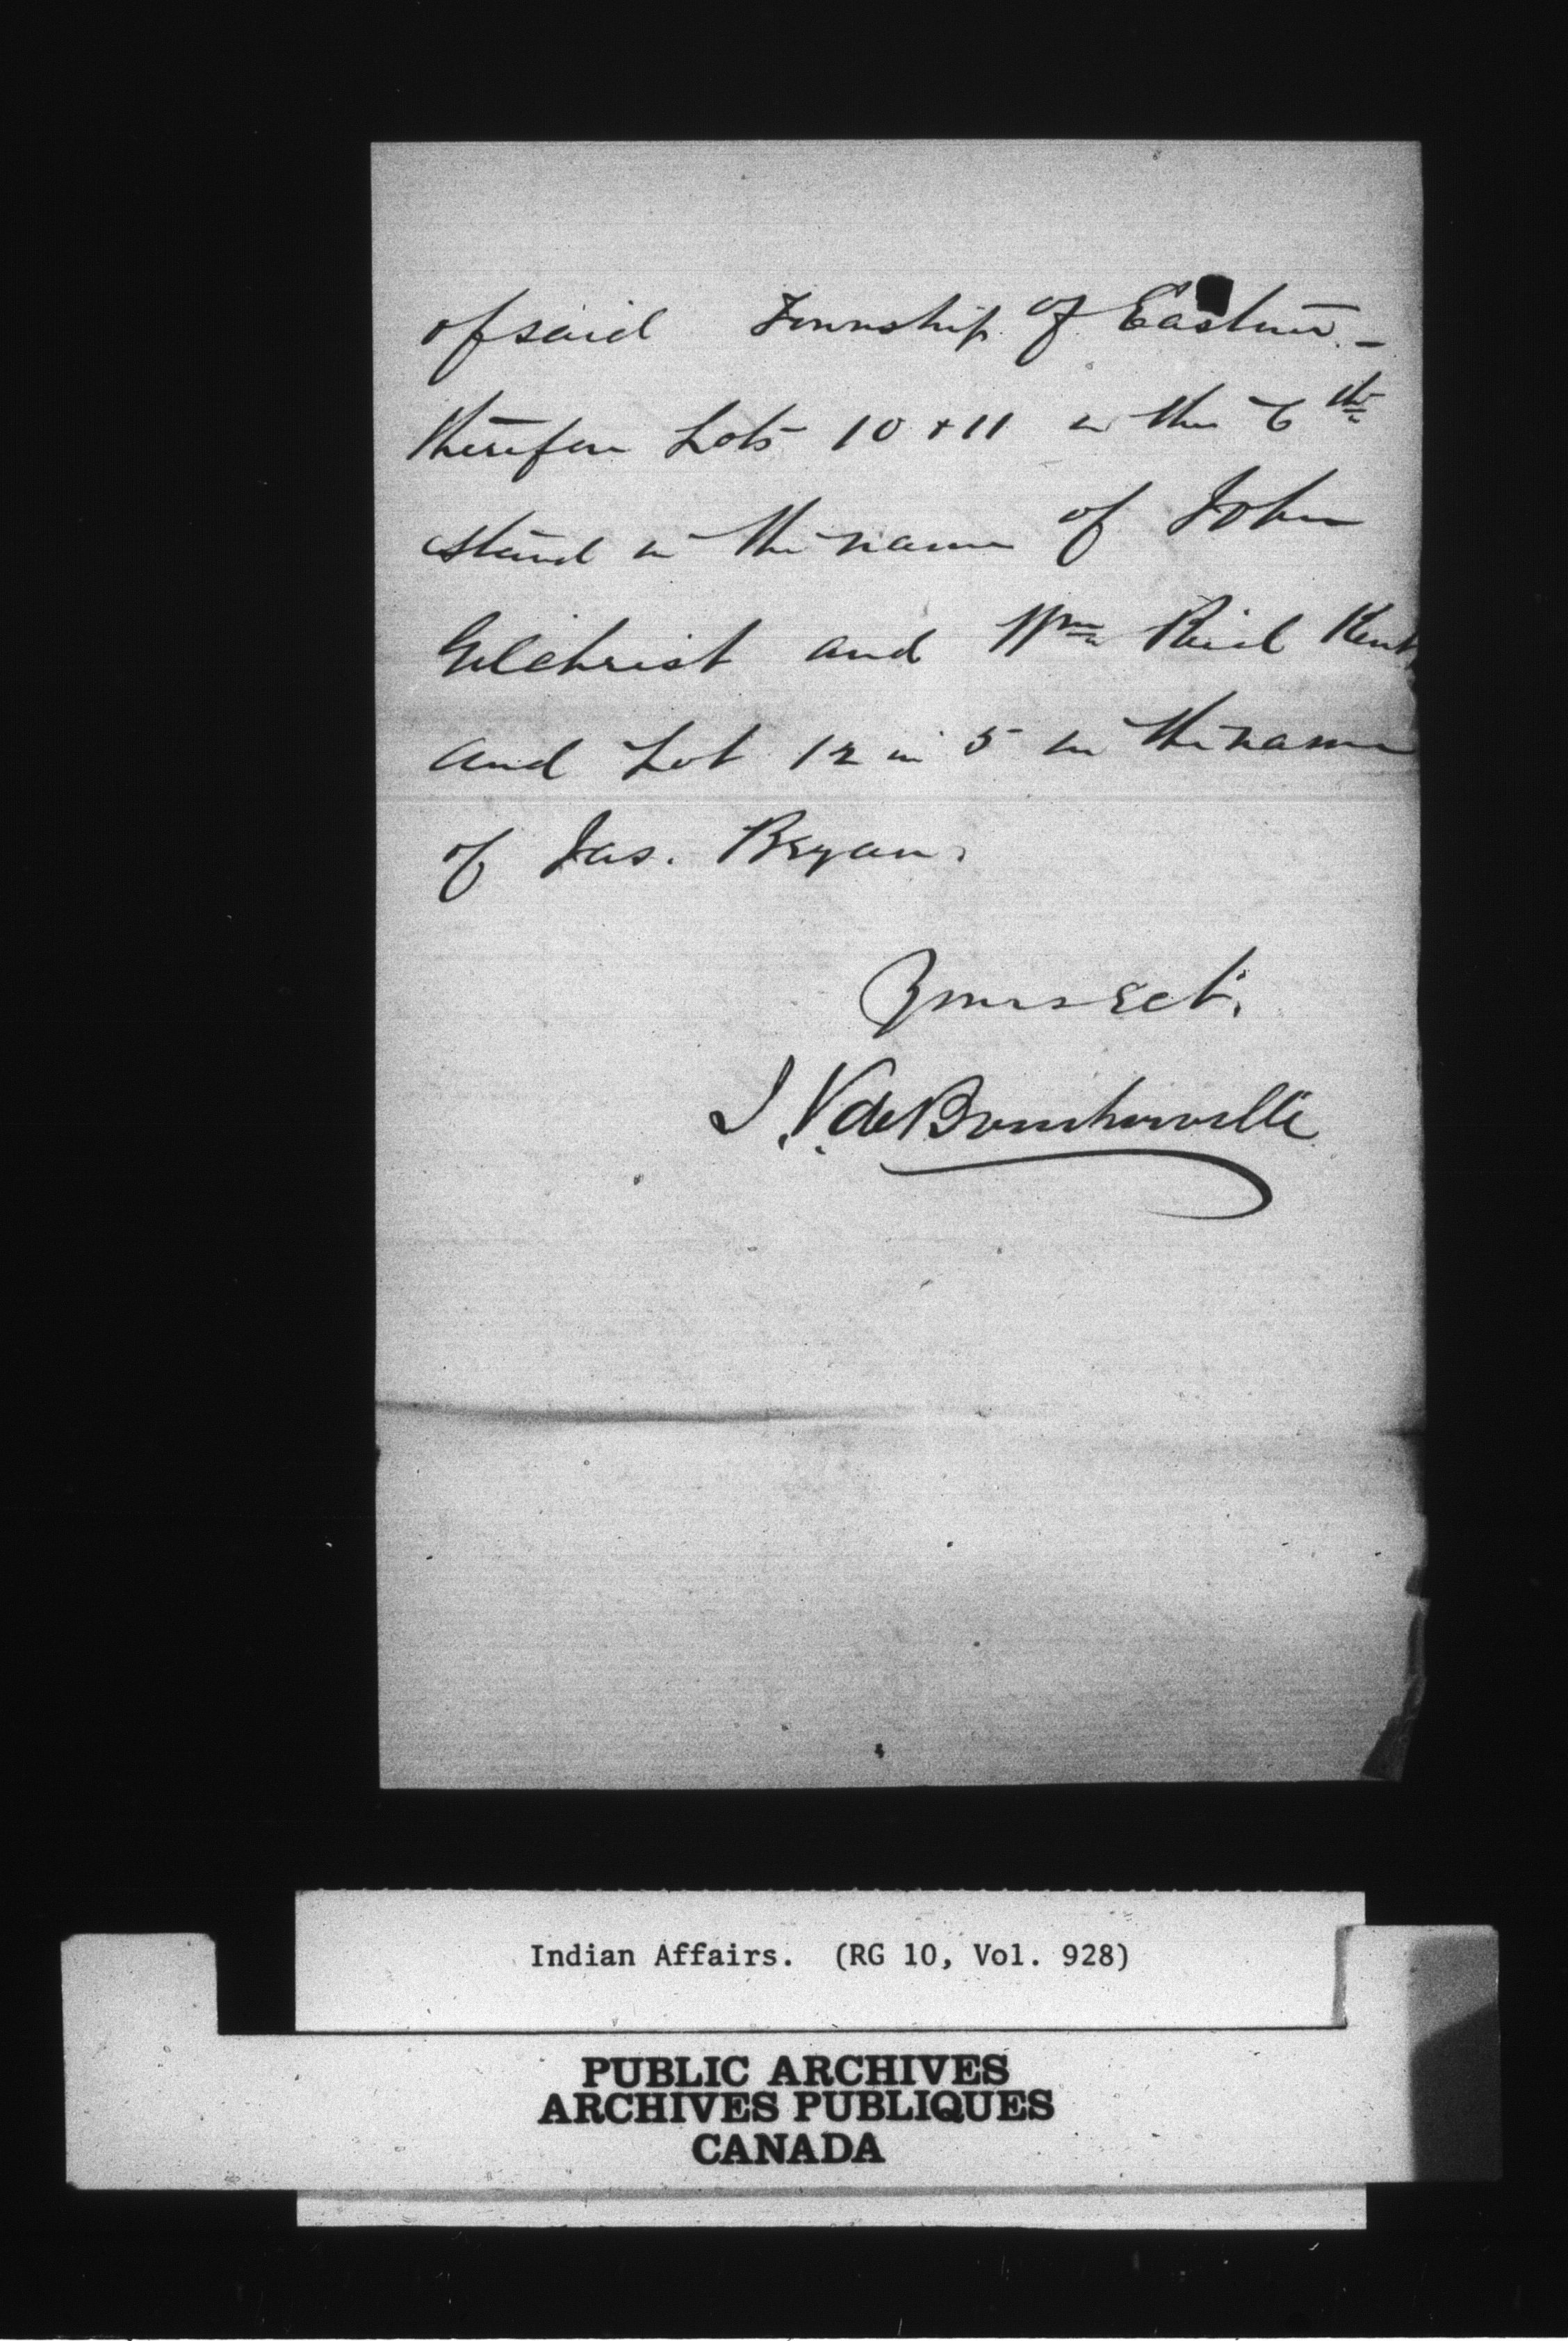 of said Township of Eastnor. -
therefore Lots 10 & 11 in the 6th
stand in the name of John
Gilchrist and Wm Reid Kent
and Lot 12 in 5 in the name
of Jas. Bryan.
Yours Ect.
J. V. de Boucherville
Indian Affairs. (RG 10, Vol. 928)
PUBLIC ARCHIVES
ARCHIVES PUBLIQUES
CANADA